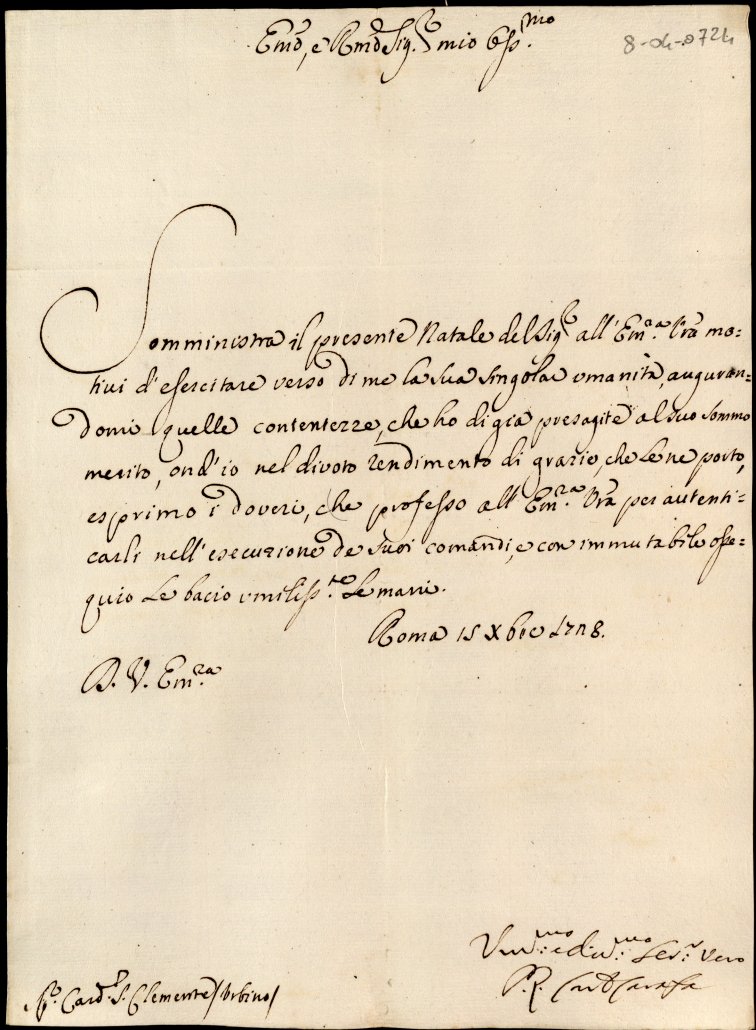 Em͞o, e Rm͞o Sig.r mio Oss.mo
8-04-0724
Somministra il presente Natale del Sig.r all' Em.za V͞ra mo=
tivi d'esercitare verso di me la sua singolar umanità, auguran=
domi quelle contentezze, che ho di già presagite al suo sommo
merito, ond' io nel divoto rendimento di grazie, che Le ne porto,
esprimo i doveri, che professo all' Em.za V͞ra per autenti=
carli nell' esecuzione de suoi comandi, e con immutabile osse=
quio Le bacio umiliss.te Le mani.
Roma 15 Xbre 1718.
D. V. Em.za
Um.mo e div.mo Ser.r vero
Card Carafa
Card. S. Clemente / Urbino /